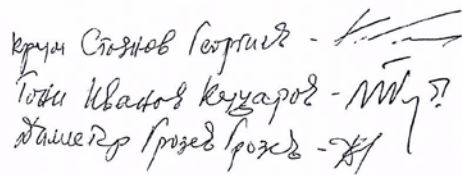 Крум Стоянов Георгиев -
Тони Иванов Кацаров -
Димитър Грозев Грозев -